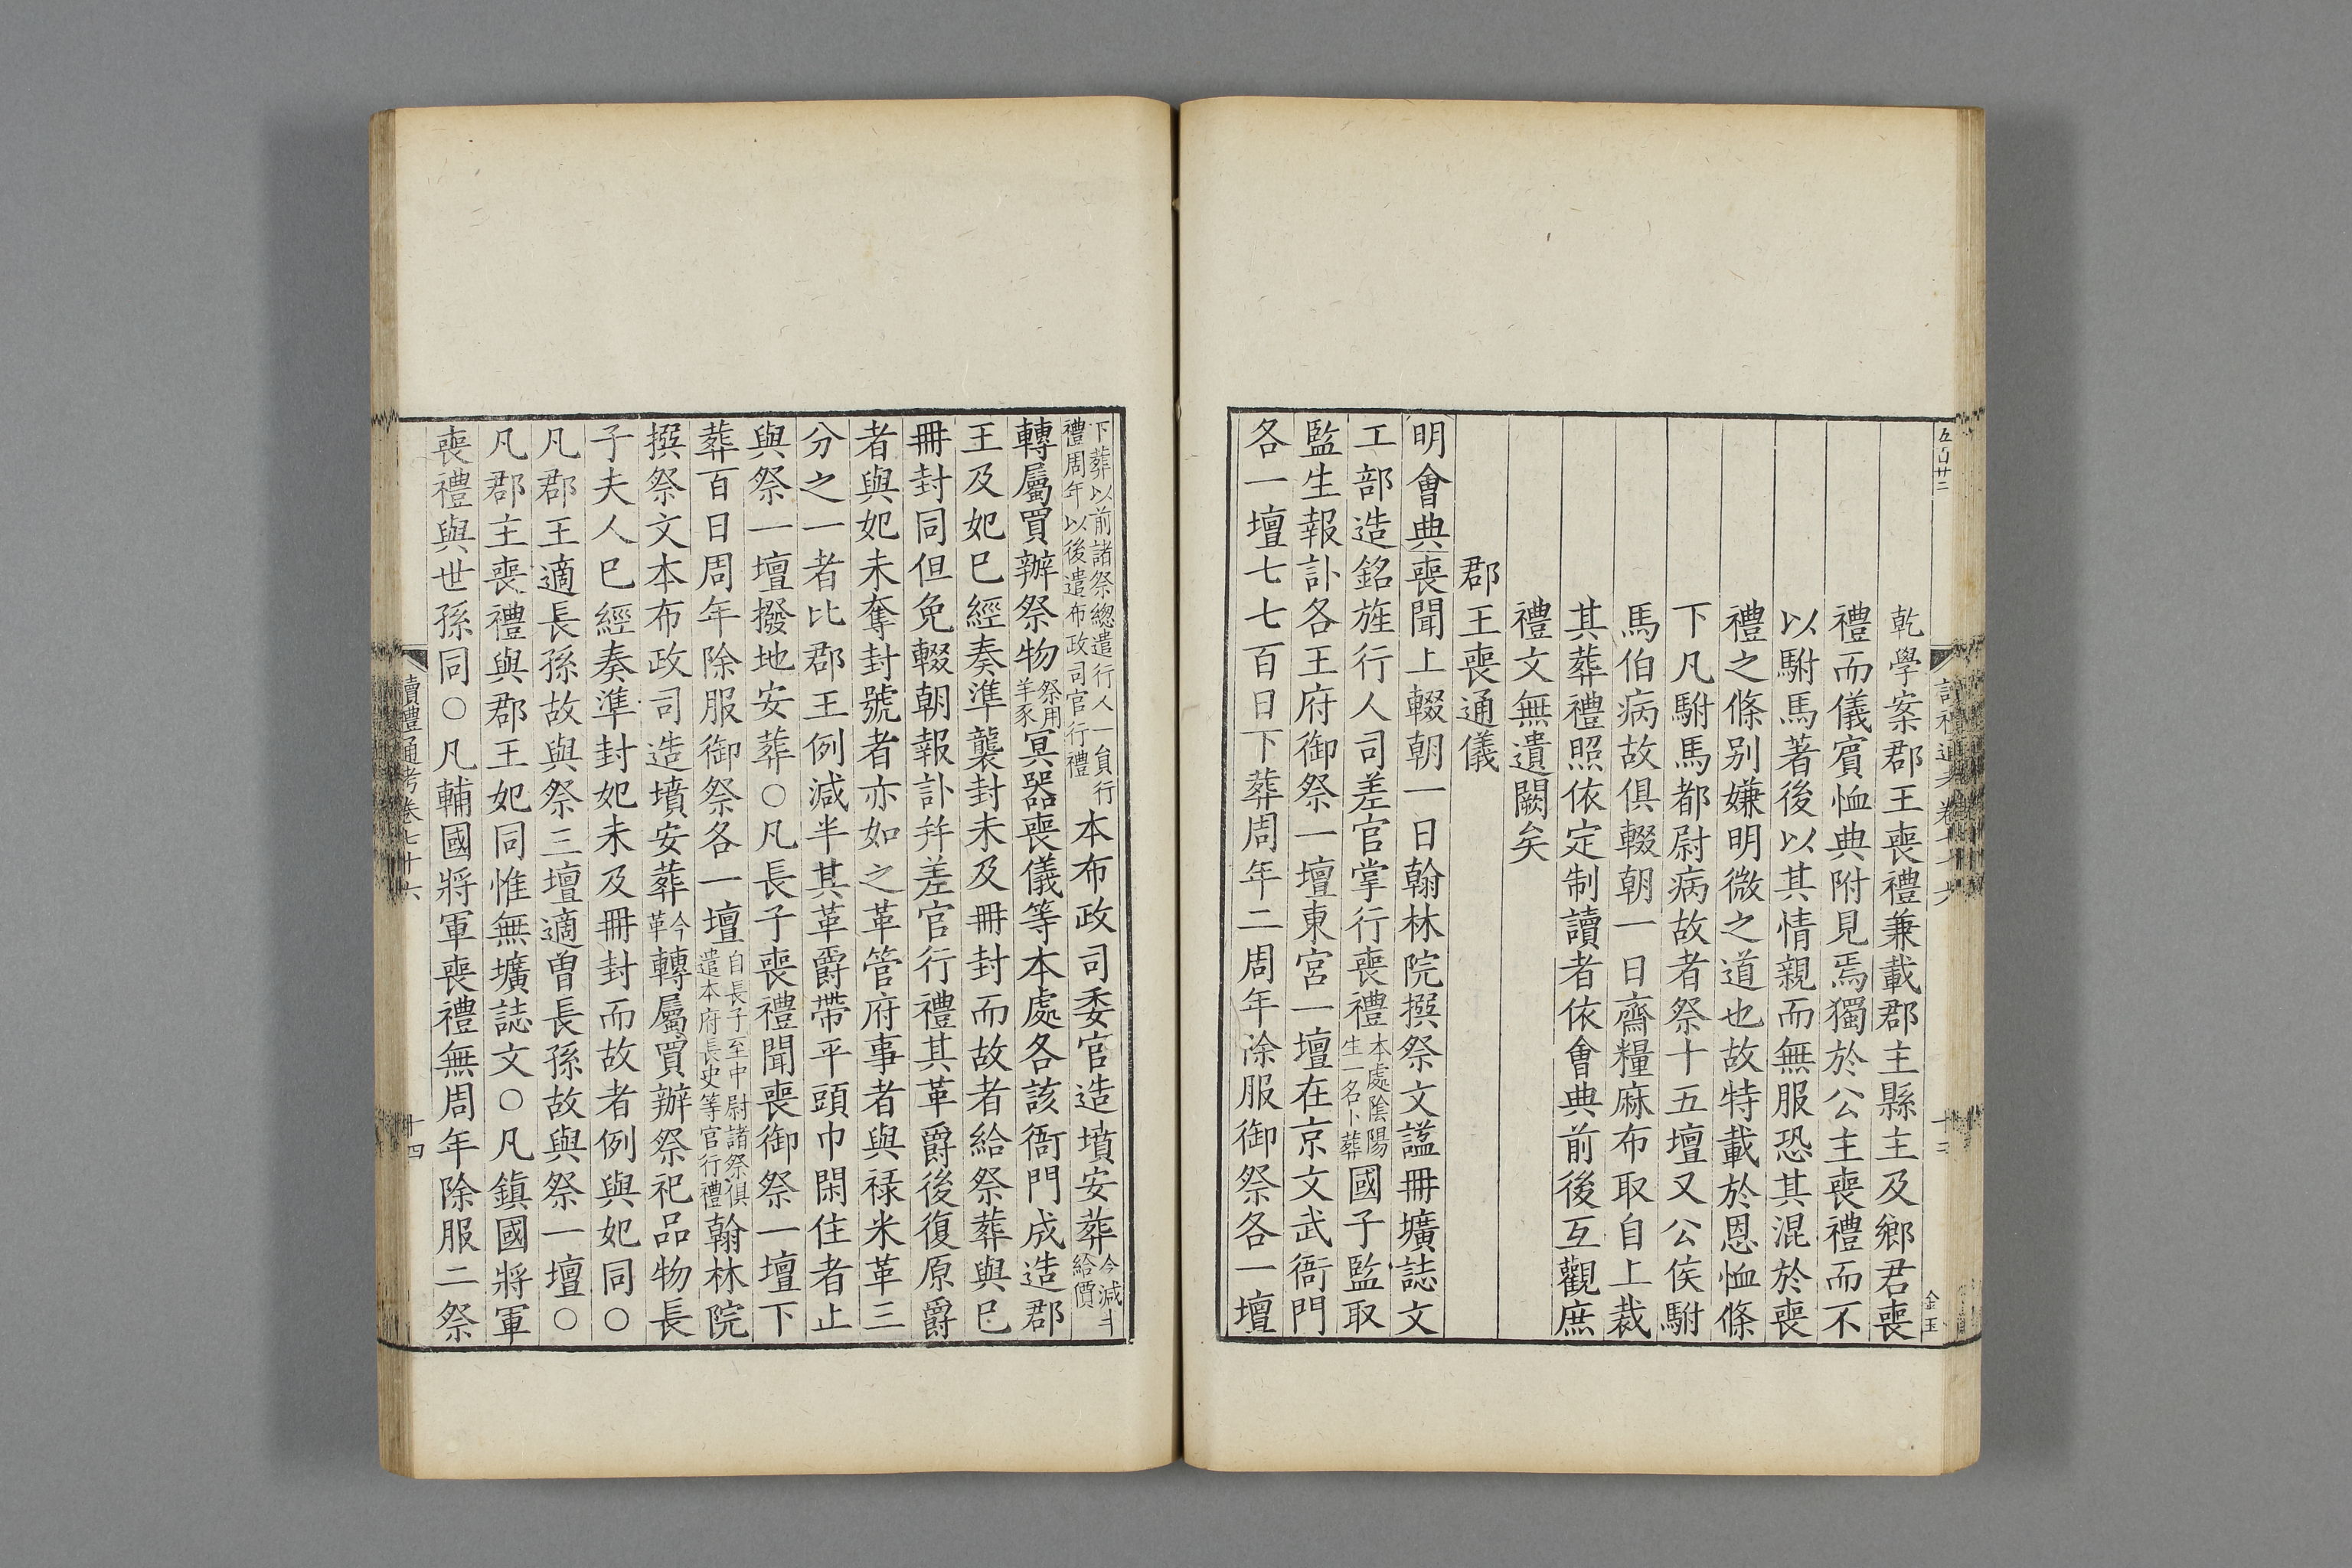 乾學案郡王喪禮兼載郡主縣主及鄉君喪
禮而儀賓恤典附見焉獨於公主喪禮而不
以駙馬著後以其情親而無服恐其混於喪
禮之條别嫌明微之道也故特載於恩恤條
下凡駙馬都尉病故者祭十五壇又公侯駙
馬伯病故俱輟朝一日齋糧麻布取自上裁
其葬禮照依定制讀者依會典前後互觀庶
禮文無遺闕矣
郡王喪通儀
明會典喪聞上輟朝一日翰林院撰祭文謚冊壙誌文
工部造銘旌行人司差官掌行喪禮本處陰陽生一名卜葬國子監取
監生報訃各王府御祭一壇東宮一壇在京文武衙門
各一壇七七百日下葬周年二周年除服御祭各一壇
下葬以前諸祭總遣行人一員行禮周年以後遣布政司官行禮本布政司委官造墳安葬今減半給價
轉屬買辦祭物祭用羊豕冥器喪儀等本處各該衙門成造郡
王及妃巳經奏準襲封未及冊封而故者給祭葬與巳
冊封同但免輟朝報訃并差官行禮其革爵後復原爵
者與妃未奪封號者亦如之革管府事者與祿米革三
分之一者比郡王例減半其革爵帶平頭巾閑住者止
與祭一壇撥地安葬○凡長子喪禮聞喪御祭一壇下
葬百日周年除服御祭各一壇自長子至中尉諸祭俱遣本府長史等官行禮翰林院
撰祭文本布政司造墳安葬今革轉屬買辦祭祀品物長
子夫人巳經奏準封妃未及冊封而故者例與妃同○
凡郡王適長孫故與祭三壇適曾長孫故與祭一壇○
凡郡主喪禮與郡王妃同惟無壙誌文○凡鎮國將軍
喪禮與世孫同○凡輔國將軍喪禮無周年除服二祭
讀禮通考卷七十六
十四